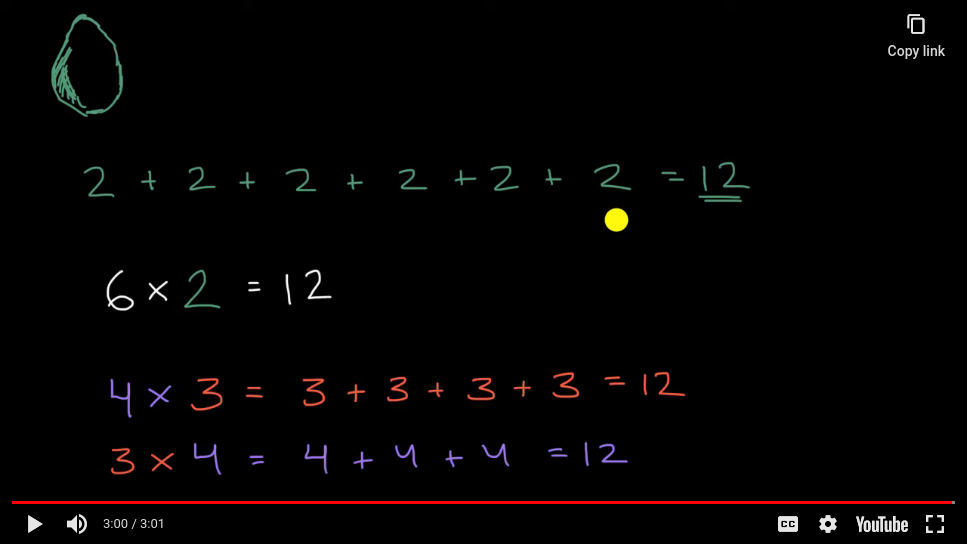 Copy link
2 + 2 + 2 + 2 + 2 + 2 = 12
6 × 2 = 12
4 × 3 = 3 + 3 + 3 + 3 = 12
3 × 4 = 4 + 4 + 4 = 12
3:00 / 3:01 CC YouTube